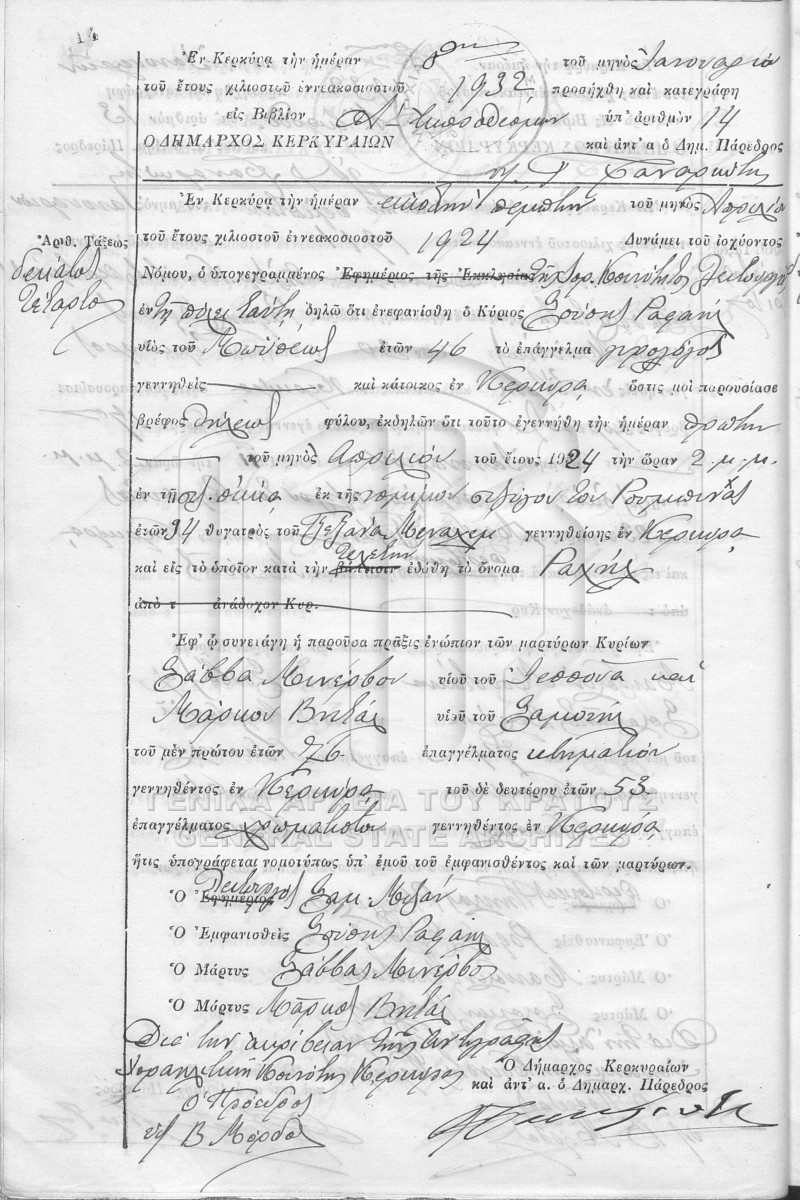 14
Ἐν Κερκύρᾳ τὴν ἡμέραν 8ην τοῦ μηνὸς Ἰανουαρίου
τοῦ ἔτους χιλιοστοῦ ἐννεακοσιοστοῦ 1932 προσήχθη καὶ κατεγράφη
εἰς Βιβλίον ὑπ' ἀριθμὸν 14
Ο ΔΗΜΑΡΧΟΣ ΚΕΡΚΥΡΑΙΩΝ καὶ ἀντ' α ὁ Δημ. Πάρεδρος
Ἐν Κερκύρᾳ τὴν ἡμέραν εἰκοστὴν πέμπτην τοῦ μηνὸς Ἀπριλίου
Ἀριθ. Τάξεως
δέκατος
τέταρτος
τοῦ ἔτους χιλιοστοῦ ἐννεακοσιοστοῦ 1924 Δυνάμει τοῦ ἰσχύοντος
Νόμου, ὁ ὑπογεγραμμένος Ἐφημέριος τῆς Ἐκκλησίας τῆς Ἰσρ. Κοινότητος Λειτουργὸς
ἐν τῇ πόλει ταύτῃ δηλῶ ὅτι ἐνεφανίσθη ὁ Κύριος Σούσης Ραφαὴλ
υἱὸς τοῦ Μωϋσέως ἐτῶν 46 τὸ ἐπάγγελμα
γεννηθεὶς καὶ κάτοικος ἐν Κερκύρᾳ ὅστις μοι παρουσίασε
βρέφος θήλεος φύλου, ἐκδηλῶν ὅτι τοῦτο ἐγεννήθη τὴν ἡμέραν πρώτην
τοῦ μηνὸς Ἀπριλίου τοῦ ἔτους 1924 τὴν ὥραν 2 μ.μ.
ἐν τῇ οἰκίᾳ ἐκ τῆς νομίμου συζύγου του Ρουμπίνας
ἐτῶν 34 θυγατρὸς τοῦ Μεναχεμ γεννηθείσης ἐν Κερκύρᾳ
καὶ εἰς τὸ ὁποῖον κατὰ τὴν βάπτισιν τελετὴν ἐδώθη τὸ ὄνομα Ραχὴλ
ἀπὸ τ ἀνάδοχον Κυρ.
Ἐφ' ᾧ συνετάγη ἡ παροῦσα πρᾶξις ἐνώπιον τῶν μαρτύρων Κυρίων
Σάββα Μινέρβου υἱοῦ τοῦ Ἰεσσουᾶ καὶ
Μάρκου Βιτάλ υἱοῦ τοῦ Σαμουὴλ
τοῦ μὲν πρώτου ἐτῶν 76 ἐπαγγέλματος κτηματίου
γεννηθέντος ἐν Κερκύρᾳ τοῦ δὲ δευτέρου ἐτῶν 53
ΓΕΝΙΚΑ ΑΡΧΕΙΑ ΤΟΥ ΚΡΑΤΟΥΣ
ἐπαγγέλματος χρωματιστοῦ γεννηθέντος ἐν Κερκύρᾳ
GENERAL STATE ARCHIVES
ἥτις ὑπογράφεται νομοτύπως ὑπ' ἐμοῦ τοῦ ἐμφανισθέντος καὶ τῶν μαρτύρων.
Ὁ Ἐφημέριος Λειτουργὸς Σαμ. Μιζάν
Ὁ Ἐμφανισθεὶς Σούσης Ραφαὴλ
Ὁ Μάρτυς Σάββας Μινέρβος
Ὁ Μάρτυς Μάρκος Βιτάλ
Διὰ τὴν ἀκρίβειαν τῆς ἀντιγραφῆς
Ἰσραηλιτικὴ Κοινότης Κερκύρας
Ὁ Δήμαρχος Κερκυραίων
καὶ ἀντ' α. ὁ Δημαρχ. Πάρεδρος
Ὁ Πρόεδρος